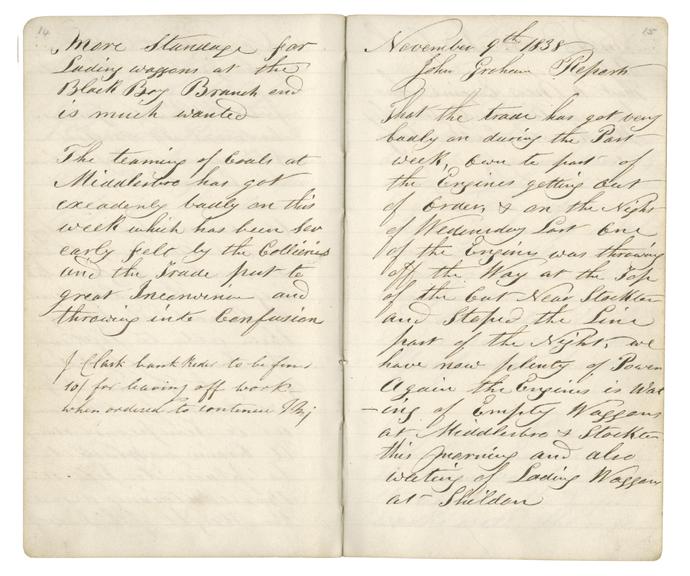 14
More Standage for
Lading waggons at the
Black Boy Branch end
is much wanted
The teaming of Coals at
Middlesbro has got
exceadenly badly on this
week which has been Sev
early felt by the Collieries
and the Trade put to
great Inconvinience and
throwing into Confusion
J Clark bank Rider to be fined
10/ for leaving off work
when ordered to continue
15
November 9th 1838
John Graham Reports
That the trade has got very
badly on during the Past
week, own to part of
the Engines getting out
of Order, & on the Night
of Wednesday Last One
of the Engines was throwing
off the Way at the Top
of the Cut Near Stockton
and Stoped the Line
part of the Night, we
have now plenty of Power
Again the Engines is Wat
-ing of Empty Waggons
at Middlesbro & Stockton
this morning and also
wateing of Lading Waggons
at Shildon